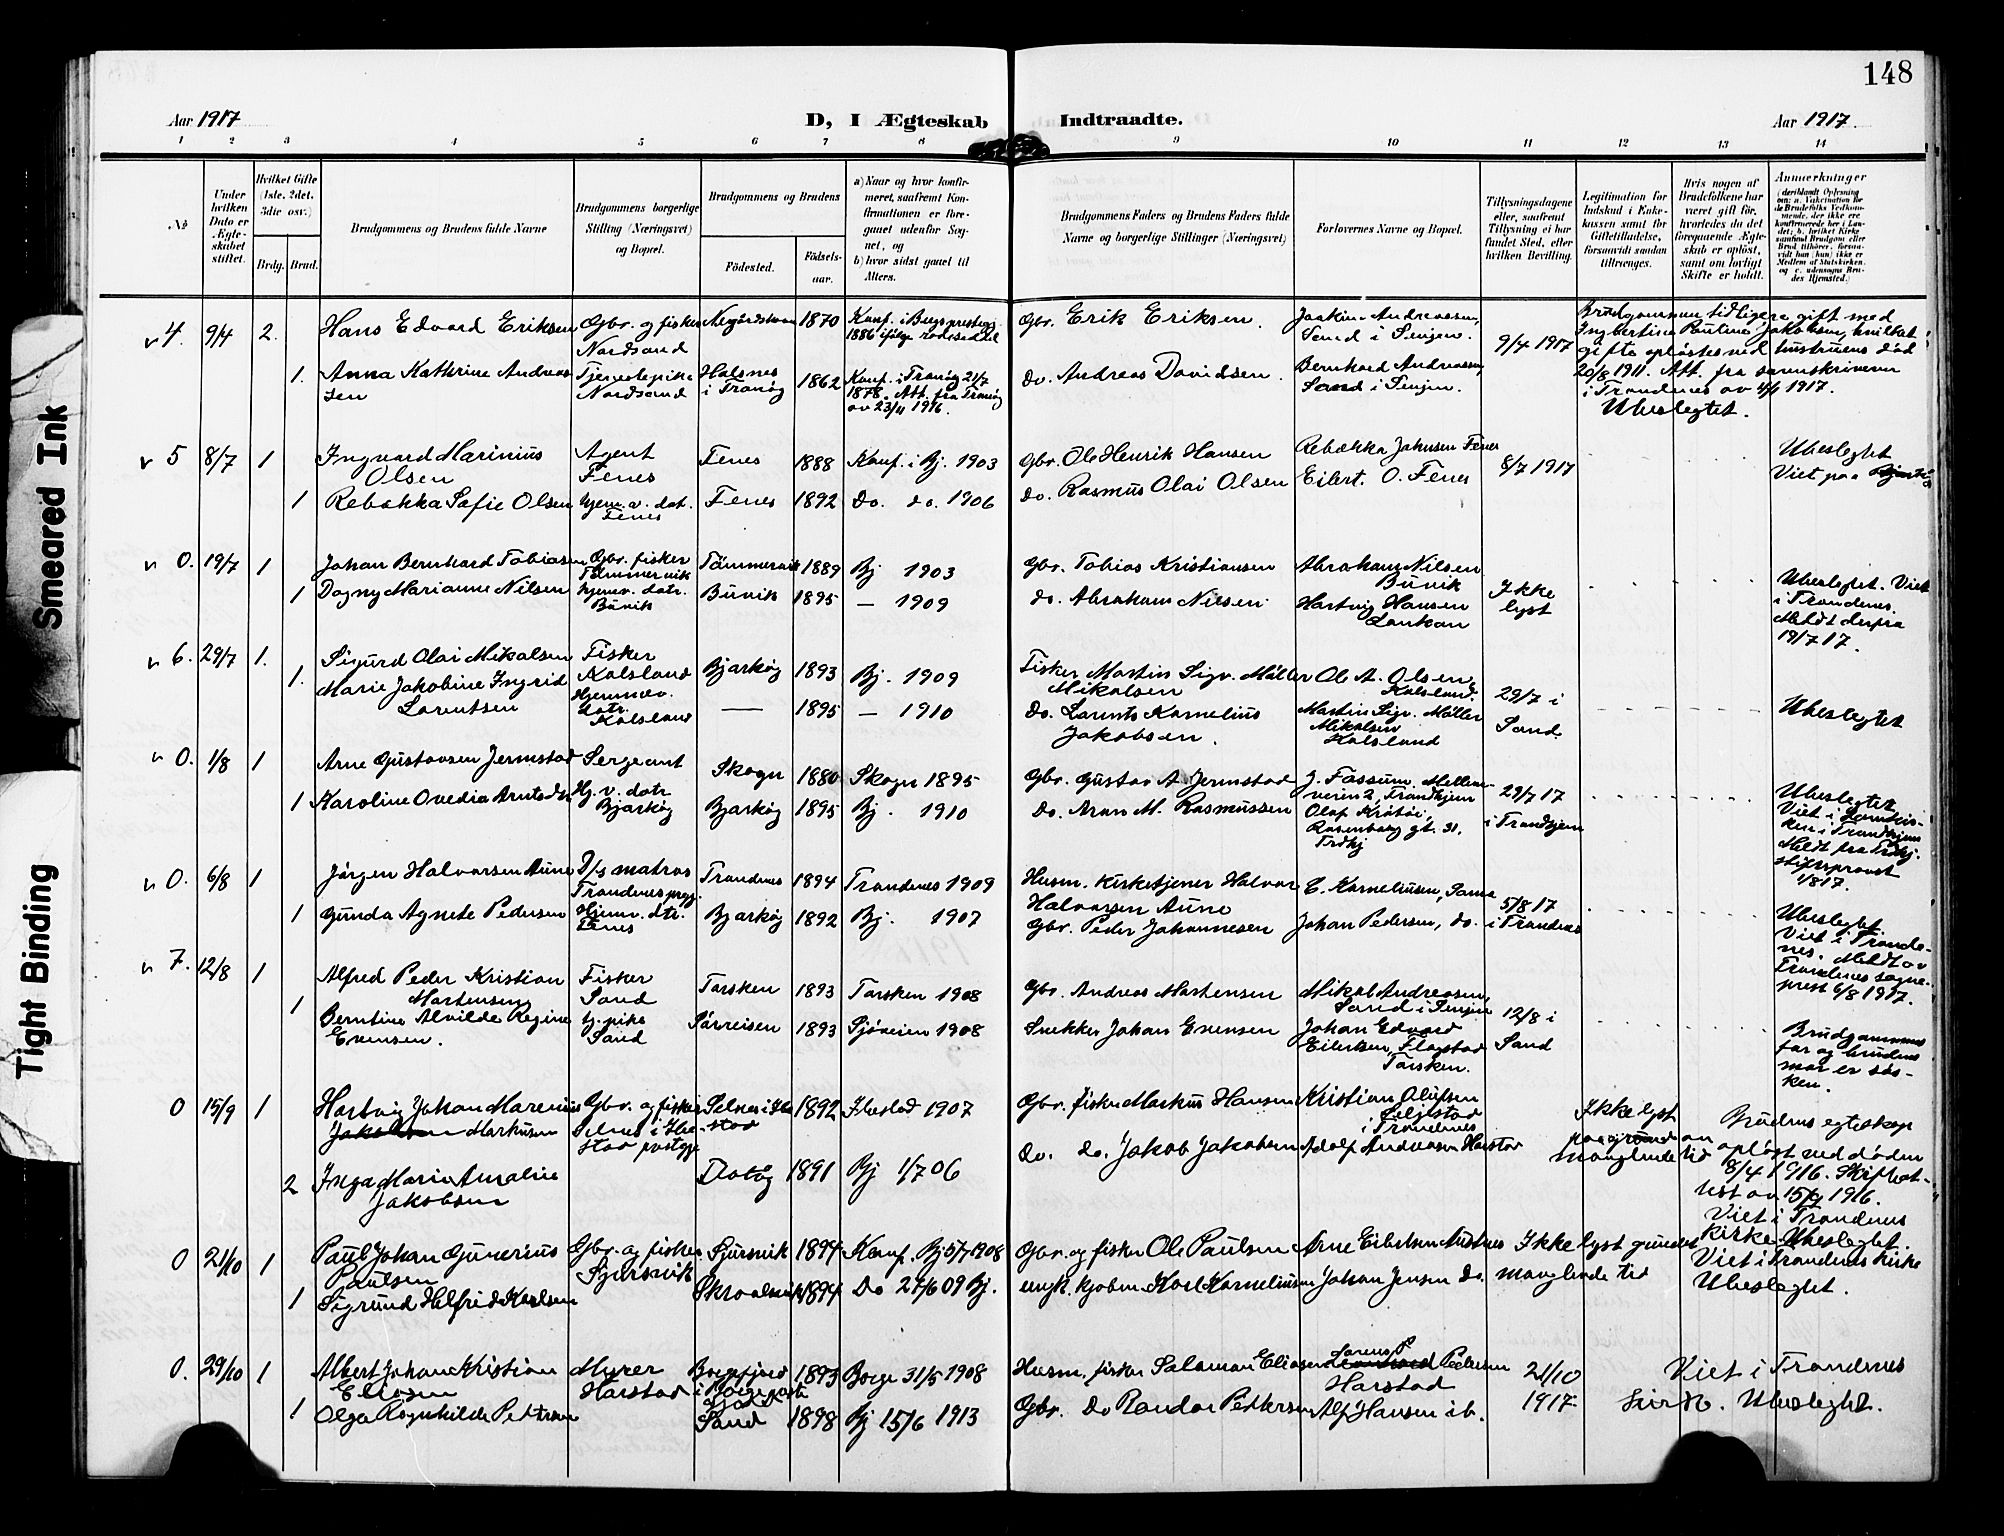 148
Aar 1917
D, I Ægteskab Indtraadte.
Aar 1917.
1 2 3 4 5 6 7 8 9 10 11 12 13 14
No
Under hvilken Dato er Ægteskabet stiftet.
Hvilket Gifte (1ste, 2det, 3die osv.)
Brdg. Brud.
Brudgommens og Brudens fulde Navne
Brudgommens borgerlige Stilling (Næringsvei) og Bopæl.
Brudgommens og Brudens
Födested.
Födselsaar.
a) Naar og hvor konfirmeret, saafremt Konfirmationen er foregaaet udenfor Sognet, og
b) hvor sidst gaaet til Alters.
Brudgommens Faders og Brudens Faders fulde Navne og borgerlige Stillinger (Næringsvei)
Forlovernes Navne og Bopæl.
Tillysningsdagene eller, saafremt Tillysning ei har fundet Sted, efter hvilken Bevilling.
Legitimation for Indskud i Enkekassen samt for Giftetilladelse, forsaavidt saadan tiltrænges.
Hvis nogen af Brudefolkene har været gift før, hvorledes da det foregaaende Ægteskab er opløst, samt om lovligt Skifte er holdt.
Anmerkninger
(deriblandt Oplysning om: a. Vakcination for de Brudefolks Vedkommende, der ikke ere konfirmerede her i Landet; b. hvilket Kirkesamfund Brudgom eller Brud tilhører, forsaavidt han (hun) ikke er Medlem af Statskirken, og c. udensogns Brudes Hjemsted.)
v 4. 9/4 2. Hans Edvard Eriksen Gbr. og fisker Nordsand 1870 Konf. i Bergs prestegj. 1886 ifølge rodeseddel
Gbr. Erik Eriksen. Joakim Andreassen, Sand i Senjen. 9/4 1917
Brudgommen tidligere gift med Ingbertine Pauline Jakobsen, hvilket gifte opløstes ved hustruens død 20/8 1911. Att. fra sorenskriveren i Trondenes av 4/4 1917. Ubeslegtet.
1. Anna Kathrine Andreassen Tjenestepike Nordsand Halsnes i Tranøy 1862 Konf. i Tranøy 21/7 1878. Att. fra Tranøy av 23/11 1916.
do. Andreas Davidsen. Bernhard Andreassen, Sand i Senjen.
v 5 8/7 1 Ingvard Marinius Olsen Agent Fenes Fenes 1888 Konf. i Bj. 1903
Gbr. Ole Henrik Hansen Rebekka Johnsen Fenes 8/7 1917 Ubeslegtet
1 Rebekka Sofie Olsen hjem.v. dat. Fenes Fenes 1892 Do. do. 1906
do. Rasmus Olai Olsen Eilert. O. Fenes Viet paa
v 0. 19/7 1 Johan Bernhard Tobiasen Gbr. fisker Tømmervik Tömmervik 1889 Bj 1903
Gbr. Tobias Kristiansen Abraham Nilsen Buvik Ikke lyst
1 Dagny Marianne Nilsen hjemv. datr. Buvik Buvik 1895 — 1909
do. Abraham Nilsen. Hartvig Hansen Lankan Ubeslegtet. Viet i Trondenes. Meldt derfra 19/7 17.
v 6. 29/7 1. Sigurd Olai Mikalsen Fisker Kalsland Bjarkøy 1893 Bj. 1909
Fisker Martin Sigv. Møller Mikalsen Ole A. Olsen, Kalsland. 29/7 i Sand. Ubeslegtet
1. Marie Jakobine Ingrid Lorentsen Hjemmev. datr. Kalsland — 1895 — 1910
do. Lorents Kornelius Jakobsen. Martin Sigv. Møller Mikalsen Kalsland
v 0. 1/8 1 Arne Gustavsen Jermstad Sergeant Skogn 1880 Skogn 1895
Gbr. Gustav A. Jermstad J. Fossum, Mellemverin 2, Trondhjem 29/7 17 i Trondhjem
1 Karoline Ovedia Arntsdtr Hj. v. datr Bjarkøy Bjarkøy 1895 Bj. 1910
do. Aron M. Rasmussen Olaf Kråbøi, Rosenborg gt. 31. Trdhj
Ubeslegtet Viet i Domkirken i Trondhjem. Meldt fra Trdhj. stiftsprovst 1/8 17.
v 0. 6/8 1 Jörgen Halvorsen Aune D/s matros Trondenes pregj. Trondenes 1894 Trondenes 1909
Husm. Kirketjener Halvor Halvorsen Aune E. Korneliusen, Sama 5/8 17 i Trondenes
1 Gunda Agnete Pedersen Hjemv. dtr. Fenes Bjarkøy 1892 Bj. 1907
Gbr. Peder Johannesen Johan Pedersen, do.
Ubeslegtet. Viet i Trondenes. Meldt av Trondenes sogneprest 6/8 1917.
v 7. 12/8 1 Alfred Peder Kristian Mortensen Fisker Sand Torsken 1893 Torsken 1908
Gbr. Andreas Mortensen Mikal Andreasen, Sand i Senjen 12/8 i Sand
1 Berntine Alvilde Regine Evensen. tj. pike Sand Sørreisen 1893 Sjöveien 1908
Snekker Johan Evensen Johan Edvard Eilertsen, Flagstad Torsken.
Brudgommens far og brudens mor er søsken.
0 15/9 1 Hartvig Johan Marenius Jakobsen Markusen Gbr. og fisker Selnes i Ibestad prestgj. Selnes i Ibestad 1892 Ibestad 1907
Gbr. fisker Markus Hansen Kristian Olufsen i Trondenes Ikke lyst paa grund av manglende tid
Brudens egteskap opløst ved døden 8/4 1916. Skifteattest av 15/9 1916. Viet i Trondenes kirke. Ubeslegtet.
2 Inga Marie Amalie Jakobsen Dalöy 1891 Bj 1/7 06
do. do. Jakob Jakobsen Adolf Andreasen Harstad
0 21/10 1 Paul Johan Gunerius Paulsen Gbr. og fisker Sjursvik Sjursvik 1894 Konf. Bj 5/7 1908
Gbr. og fisker Ole Paulsen Arne Eilertsen Austnes Ikke lyst grundet manglende tid
Viet i Trondenes Kirke Ubeslegtet.
1 Sigrund Helfrid Karlsen 1894 Do 27/6 09 Bj.
ungk. kjøbm. Karl Korneliusen Johan Jensen do.
0. 29/10 1 Albert Johan Kristian Eliasen Murer Harstad 1893 Borge 31/5 1908
Husm. fisker Salamon Eliasen Pedersen Harstad 21/10 1917. Viet i Trondenes kirke. Ubeslegtet.
1 Olga Ragnhilde Pettersen Sand 1898 Bj 15/6 1913
Gbr. do Randor Pettersen Alf Hansen ib.
Smeared Ink
Tight Binding